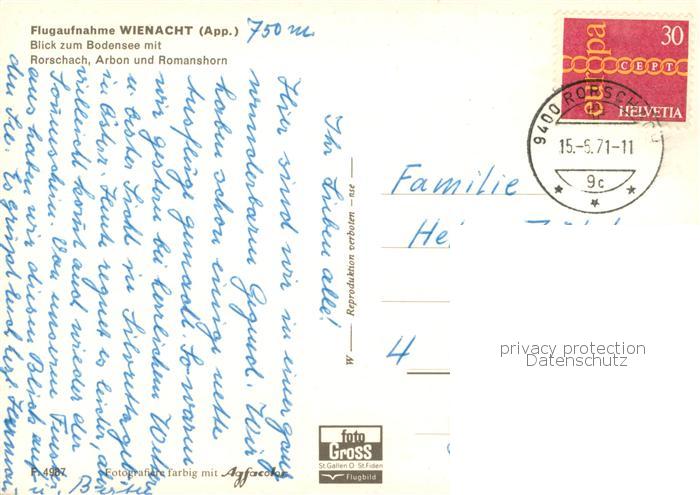 Flugaufnahme WIENACHT (App.) 750 m
Blick zum Bodensee mit
Rorschach, Arbon und Romanshorn
Ihr Lieben alle!
Hier sind wir in einer ganz
wunderbaren Gegend. Wir
haben schon einige nette
Ausflüge gemacht. So waren
wir gestern bei herrlichem Wetter
u. bester Sicht im
in Österr. Heute regnet es leider, aber
vielleicht kommt auch wieder der
Sonnenschein. Von unserem
aus haben wir diesen Blick auf
den See. Es grüßt Euch herzl.
u.
W — Reproduktion verboten — nse —
F. 4967
Fotografiere farbig mit Agfacolor
foto
Gross
St. Gallen O St. Fiden
Flugbild
30
europa
CEPT
HELVETIA
9400 RORSCHACH
15.-6.71-11
9c
Familie
He
4
privacy protection
Datenschutz